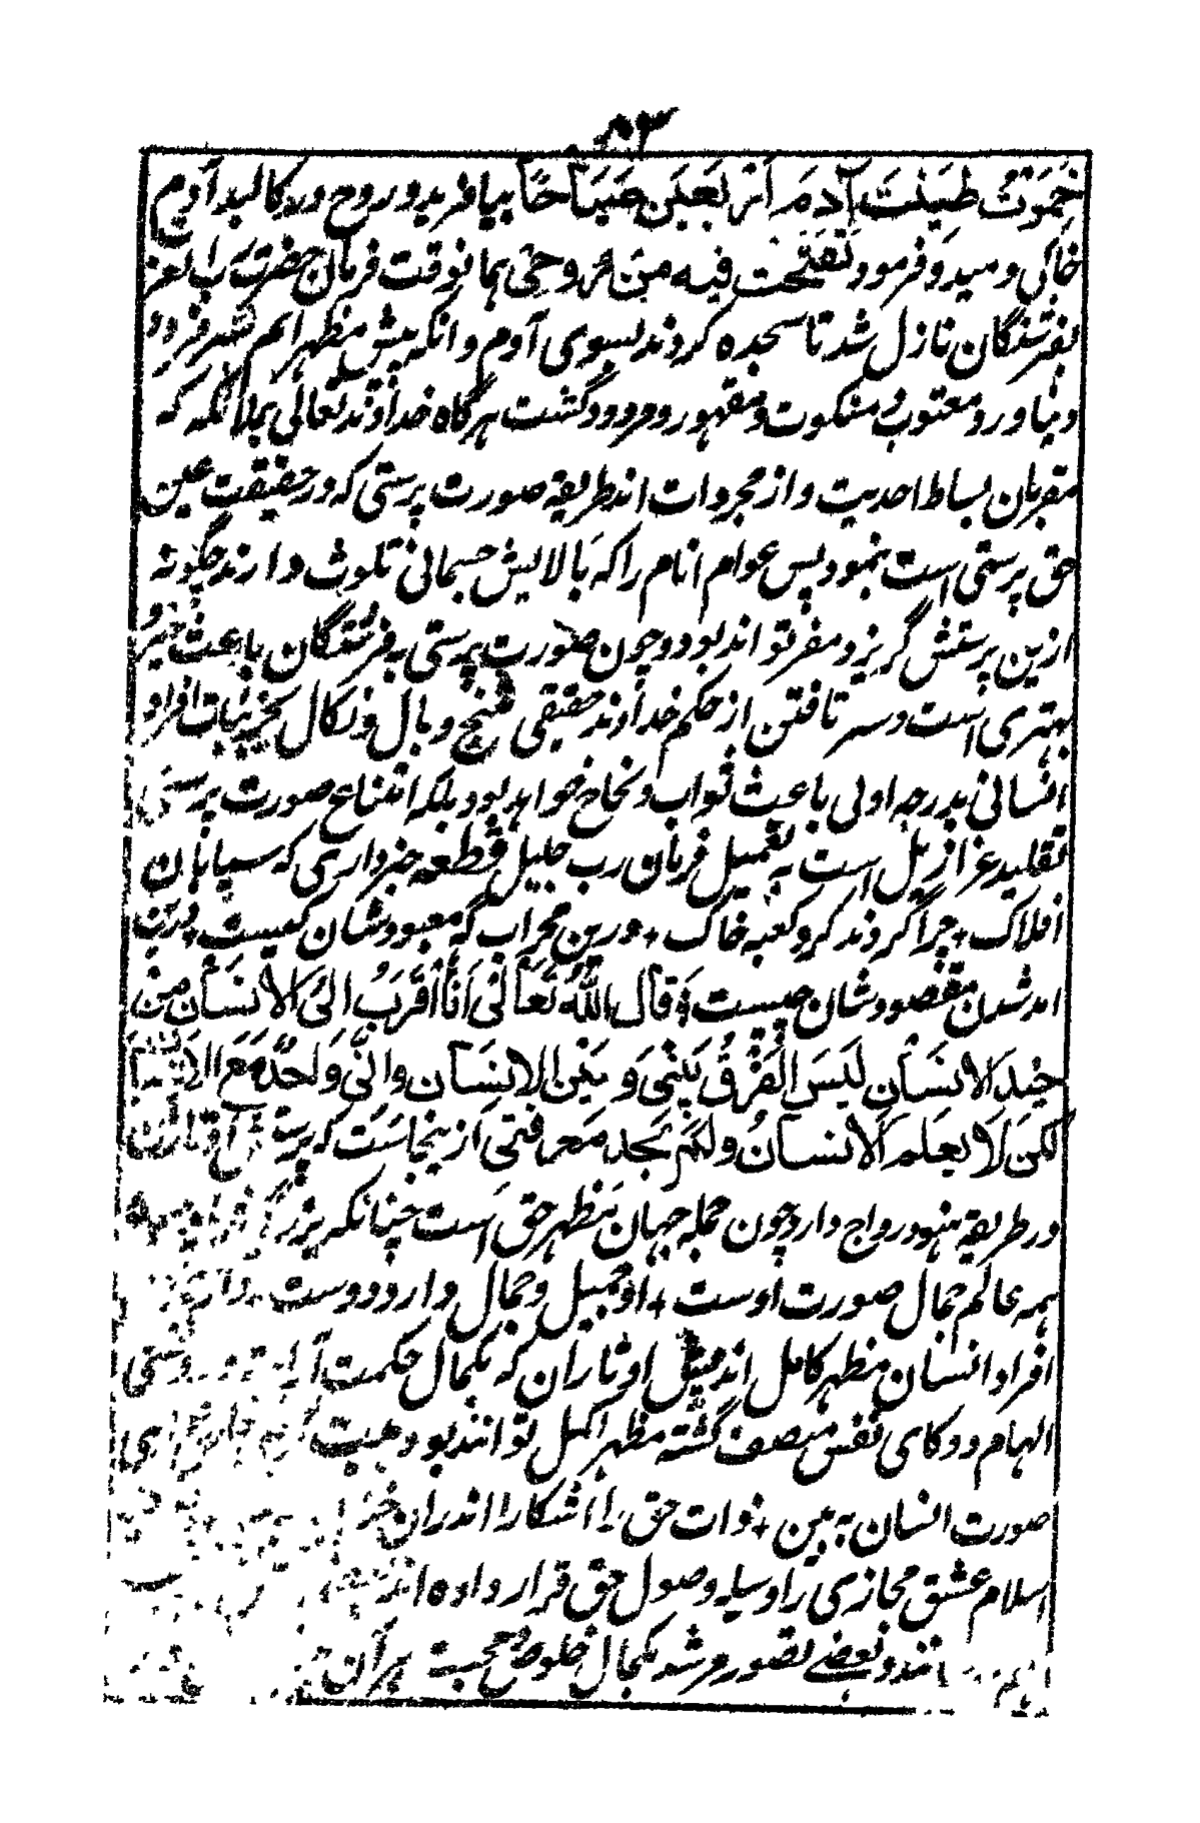 خَمَّرْتُ طِیْنَتَ آدَمَ اَرْبَعِیْنَ صَبَاحًا بیافرید و روح در کالبد آدم
خاکی دمید و فرمود نَفَخْتُ فِیْهِ مِنْ رُّوْحِیْ همانوقت فرمان حضرت رب العز
بفرشتگان نازل شد تا سجده کردند بسوی آدم و آنکه پیش مظهر اتم سر فرود
و نیاورد معتوب و منکوب و مقهور و مردود گشت هرگاه خداوند تعالی بملائکه که
مقربان بساط احدیت و از مجردات اند طریقه صورت پرستی که در حقیقت عین
حق پرستی است نمود پس عوام انام را که بالایش جسمانی تلوث دارند چگونه
ازین پرستش گریز و مفر تواند بود و چون صورت پرستی به فرشتگان باعث خیر و
بهتری است و سرتافتن از حکم خداوند حقیقی منتج وبال و نکال بجزئیات افراد
انسانی بدرجه اولی باعث ثواب و نجاح خواهد بود بلکه امتناع صورت پرستی
تقلید عزازیل است به تعمیل فرمان رب جلیل قطعه خبرداری که سیاحان
افلاک + چرا گردند گرد کعبه خاک + درین محراب گه معبودشان کیست + وزین
آمد شدن مقصودشان چیست + قَالَ اللّٰهُ تَعَالٰی اَنَا اَقْرَبُ اِلَی الْاِنْسَانِ مِنْ
جِیْدِ الْاِنْسَانِ لَیْسَ الْفَرْقُ بَیْنِیْ وَ بَیْنَ الْاِنْسَانِ وَاِنِّیْ وَاحِدٌ مَعَ الْاِنْسَانِ
لٰکِنْ لَا یَعْلَمُ الْاِنْسَانُ وَلَمْ یَجِدْ مَعْرِفَتِیْ ازینجاست که پرستش اوتاران
در طریقه هنود رواج دارد چون جمله جهان مظهر حق است چنانکه
همه عالم جمال صورت اوست + او جمیل و جمال دارد دوست +
افراد انسان مظهر کامل اند مثل اوتاران که بکمال حکمت
الهام و ذکای نفس متصف گشته مظهر اکمل توانند بود بیت
صورت انسان به بین + ذات حق را آشکارا اندران
اسلام عشق مجازی را وسیله وصول حق قرار داده اند
و بعضے تصور مرشد بکمال خلوص و محبت بر آن